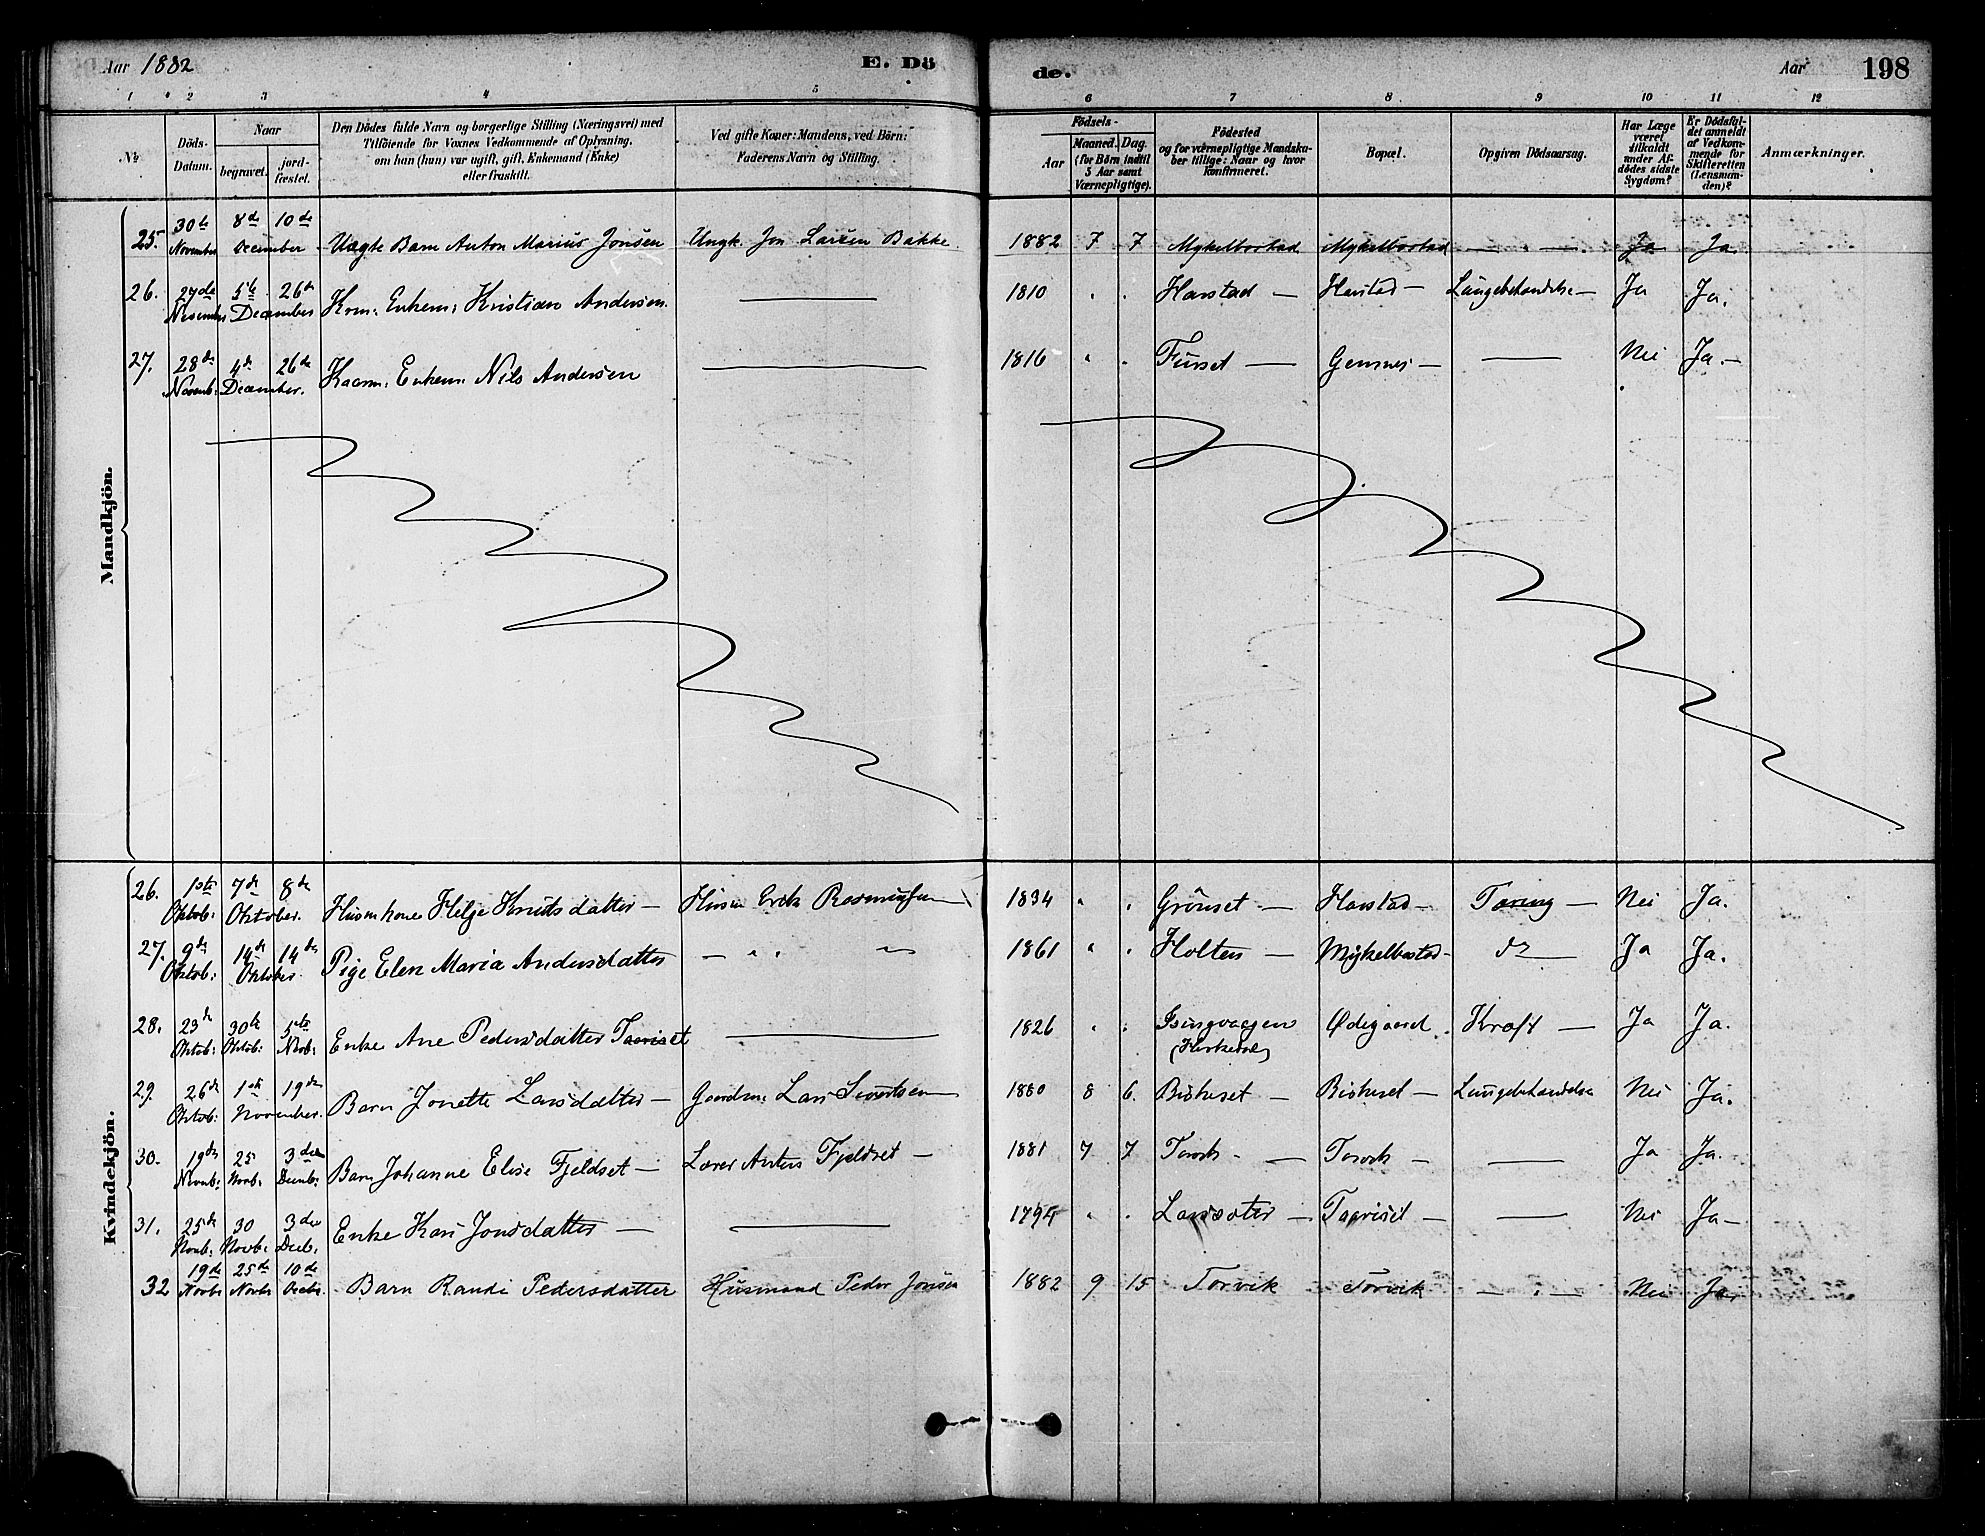 Aar 1882 E. Dö de. Aar 198
1 2 3 4 5 6 7 8 9 10 11 12
№ Döds-Datum. Naar begravet. jord-fæstet. Den Dödes fulde Navn og borgerlige Stilling (Næringsvei) med Tilföiende for Voxnes Vedkommende af Oplysning, om han (hun) var ugift, gift, Enkemand (Enke) eller fraskilt. Ved gifte Koner: Mandens, ved Börn: Faderens Navn og Stilling. Födsels- Aar Maaned. Dag. (for Börn indtil 5 Aar samt Værnepligtige). Födested og for værnepligtige Mandskaber tillige: Naar og hvor konfirmeret. Bopæl. Opgiven Dödsaarsag. Har Læge været tilkaldt under Afdödes sidste Sygdom? Er Dödsfaldet anmeldt af Vedkommende for Skifteretten (Lensmanden)? Anmærkninger.
Mandkjön.
25. 30te November 8de 10de December Uægte Barn Anton Marius Jonsen Ungk. Jon Larsen Bakke 1882 7 7 Mykelbostad Mykelbostad — " — Ja Ja
26. 27de November 5te 26de December Krm: Enkem: Kristian Andersen — 1810 " " Harstad — Harstad — Lungebetændelse — Ja Ja.
27. 28de Novemb: 4de 26de December. Kaarm: Enkem: Nils Andersen — 1816 " " Furset — Gensnes — — Nei Ja. —
Kvindekjön.
26. 1ste Oktob: 7de 8de Oktober. Husm kone Helge Knutsdatter — Husm Erik Rasmussen 1834 " " Grönset — Harstad — Tæring — Nei Ja.
27. 9de Oktob: 14de 14de Oktober. Pige Elen Maria Andersdatter — " " — 1861 " " Holten — Mykelbostad — do — Ja Ja.
28. 23de Oktob: 30te Oktob: 5te Novb: Enke Ane Pedersdatter Taariset — 1826 " " Ødegaard. Kræft — Ja Ja.
29. 26de Oktob: 1ste 19de November. Barn Jonette Larsdatter — Gaardm: Lars Sivertsen 1880 8 6. Biskeset — Biskeset — Lungebetændelse Nei Ja.
30. 19de Novb: 25 Novb: 3die Decmb: Barn Johanne Elise Fjeldset — Lærer Fjeldset — 1881 7 7 Torvik — Torvik — — Ja Ja.
31. 25de Novb: 30 Novb: 3die Decb. Enke Kari Jonsdatter — — 1794 " " Larssæter — Taariset — — Nei Ja —
32 19de Novbr 25de Novbr 10de Decbr. Barn Randi Pedersdatter Husmand Peder Jonsen 1882 9 15 Torvik Torvik — " — Nei Ja